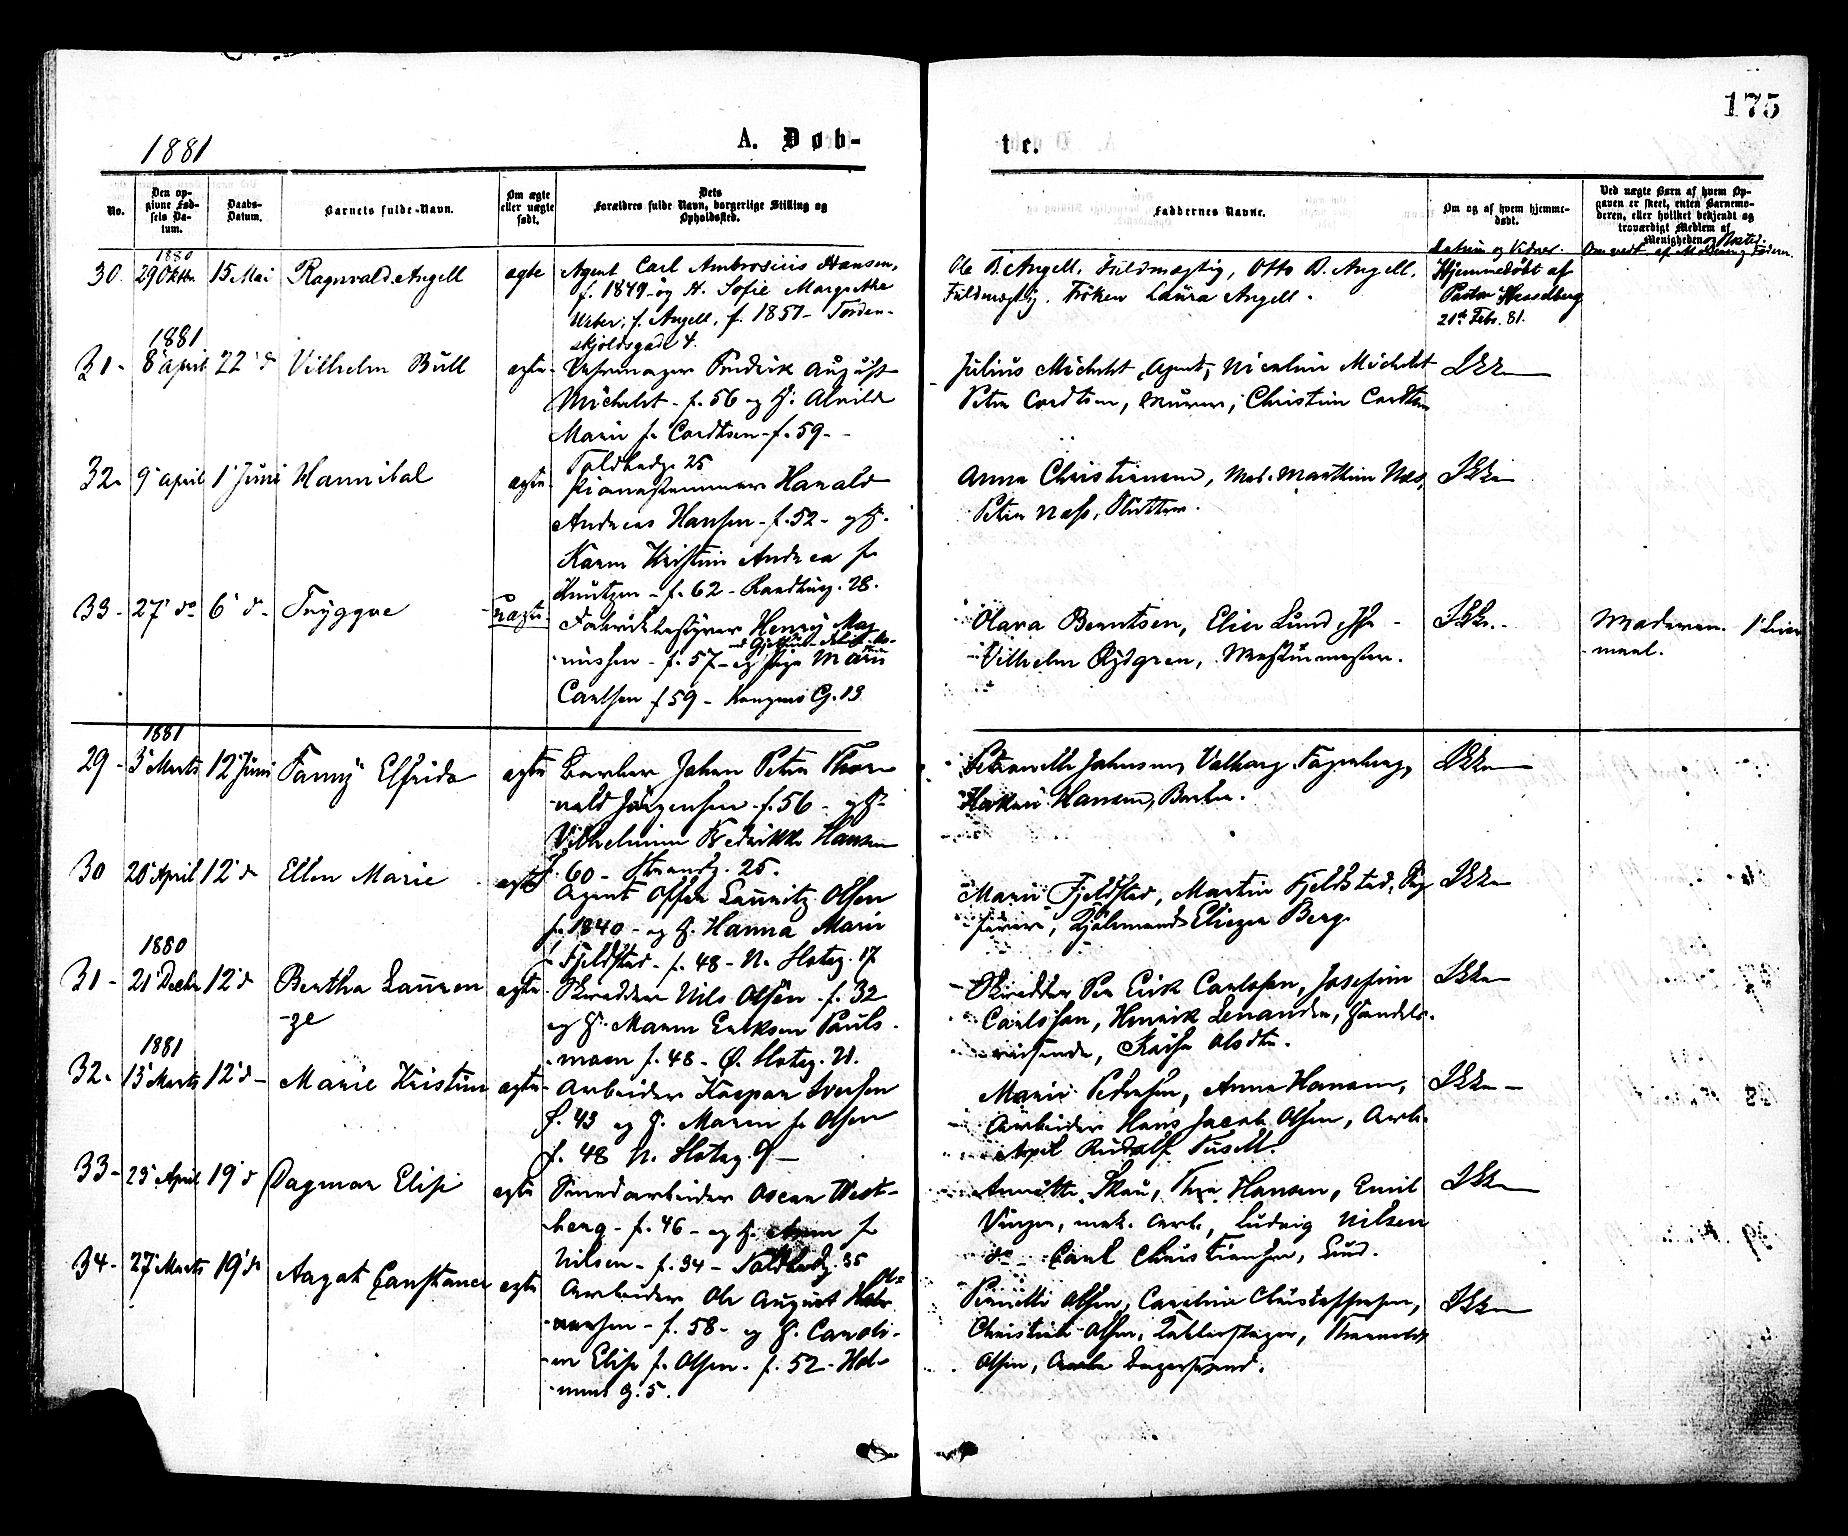 175
1881
A. Døb-
te.
No.
Den op-
givne Fød-
sels Da-
tum.
Daabs-
Datum.
Barnets fulde Navn.
Om ægte
eller uægte
født.
Dets
Forældres fulde Navn, borgerlige Stilling og
Opholdssted.
Faddernes Navne.
Om og af hvem hjemme-
døbt.
Datum og Vidner.
Ved uægte Børn af hvem Op-
gaven er skeet, enten Barnemo-
deren, eller hvilket bekjendt og
troværdigt Medlem af
Menigheden
30. 1880 29 Oktbr. 15 Mai Ragnvald Angell ægte
Agent Carl Ambrosius Hansen,
f. 1849 og H. Sofie Margrethe
Weber, f. Angell, f. 1851 - Torden-
skjoldsgade 4.
Ole B. Angell, Fuldmægtig, Otto B. Angell,
Fuldmægtig. Frøken Laura Angell.
Hjemmedøbt af
Pastor Hesselberg
21de Febr. 81.
31- 1881 8' April 22' d Vilhelm Bull ægte
Fredrik August
Michelet - f. 56 og H. Alvilde
Marie f. Cordtsen - f. 59 -
Toldbodg 25
Julius Michelet, Agent, Nicoline Michelet
Peter Cordtsen, Murer, Christine Cordtsen
Ikke
32- 9' April 1' Juni Hannibal ægte
Pianostemmer Harald
Andreas Hansen - f. 52 - og H.
Karen Kristine Andrea f.
Knutzen - f. 62 - Raadhusg. 28.
Anna Christiansen, Mad. Marthine Næs,
Peter Næss,
Ikke
33- 27' do 6' d- Trygve uægte
Fabrikbestyrer Henry Mag-
nussen - f. 57 - og Pige Marie
Carlsen f 59 - Kongens G. 13
Olava Berntsen, Elise Lund
Vilhelm Rydgren, Maskinmester.
Ikke.
Moderen. 1' Leier-
maal.
29- 1881 3' Marts 12' Juni Fanny Elfrida ægte
Barber Johan Peter Thor-
vald Jörgensen - f. 56 - og H.
Vilhelmine Fredrikke Hansen
f. 60 - Strandg. 25.
Petronelle Johnsen, Valborg Fagerberg,
Haakon Hansen, Barber.
Ikke
30 20' April 12' d Ellen Marie ægte
Agent Offer Lauritz Olsen
f. 1840 - og H. Hanna Marie
f. Fjeldstad - f. 48 - N. Slotsg. 17
Marie Fjeldstad, Martin Fjeldstad,
Kjøbmand Eliezer Berg
Ikke
31- 1880 21' Decbr 12' d Bertha Lauren
-ze ægte
Skrædder Nils Olsen - f. 32
og H. Maren Eriksen Pauls-
moen f. 48 - Ø. Slotsg. 21.
Skrædder Per Erik Carlsson, Josefine
Carlsson, Henrik Lenander, Handels-
reisende,
Ikke
32- 1881 13' Marts 12' d- Marie Kristine ægte
Arbeider Kaspar Iversen
f. 43 og H. Maren f. Olsen
f. 48 N. Slotsg. 9 -
Marie Pedersen, Anna Hansen,
Arbeider Hans Jacob Olsen, Arb.
Rudolf
Ikke -
33- 23' April 19' d Dagmar Elise ægte
Smedarbeider Oscar West-
berg - f. 46 - og H. f.
Nilsen - f. 34 - Toldbodg. 35
Annette Skau, Thea Hansen, Emil
mek. Arb., Ludvig Nilsen
do Carl Christiansen,
Ikke
34- 27' Marts 19' d Aagot Constance ægte
Arbeider Ole August
- f. 58 - og H. Caroli-
ne Elise f. Olsen - f. 52 - Hol-
mens g. 5.
Pernille Olsen, Caroline Christoffersen,
Christian Olsen,
Olsen,
Ikke